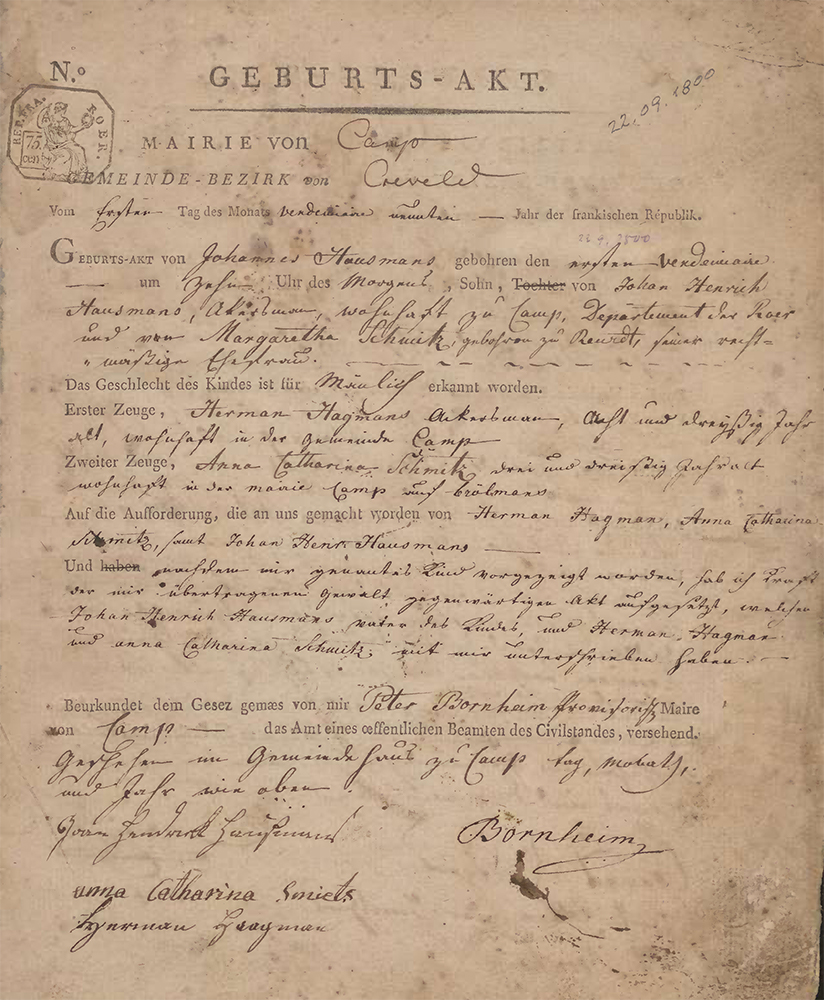 N.º
GEBURTS-AKT.
22.09.1800
REP. FRA. ROER.
75 cen
MAIRIE von Camp
GEMEINDE-BEZIRK von Creveld
Vom Ersten Tag des Monats vendemiere neunten — Jahr der frankischen Républik.
22 9. 1800
GEBURTS-AKT von Johannes Hausmans gebohren den ersten vendemiaire
— um zehn Uhr des Morgens, Sohn, Tochter von Johan Henrich
Hausmans, Akersman, wohnhaft zu Camp, Departement der Roer
und von Margaretha Schmitz, gebohren zu Reurdt, seiner recht=
„ mäßige Ehefrau.
Das Geschlecht des Kindes ist für Mänlich erkannt worden.
Erster Zeuge, Herman Hagmans Ackersman, Acht und dreyßig Jahr
alt, wohnhaft in der Gemeinde Camp
Zweiter Zeuge, Anna Catharina Schmitz drei und dreißig Jahr alt
wohnhaft in der mairie Camp auf
Auf die Aufforderung, die an uns gemacht worden von Herman Hagman, Anna Catharina
Schmitz, samt Johan Henr. Hausmans —
Und haben nachdem mir genantes Kind vorgezeigt worden, hab ich Kraft
der mir übertragenen Gewalt gegenwärtigen Akt aufgesetzt, welchen
Johan Henrich Hausmans vater des Kindes, und Herman Hagman
und anna Catharina Schmitz mit mir unterschrieben haben. —
Beurkundet dem Gesez gemæs von mir Peter Bornheim Provisorisch Maire
von Camp — das Amt eines œffentlichen Beamten des Civilstandes, versehend.
Geschehen im Gemeinde Haus zu Camp tag, Monaths,
und Jahr wie oben.
Joan Hendrick Hausmans
Bornheim
anna Catharina Smiets
Herman Haagman